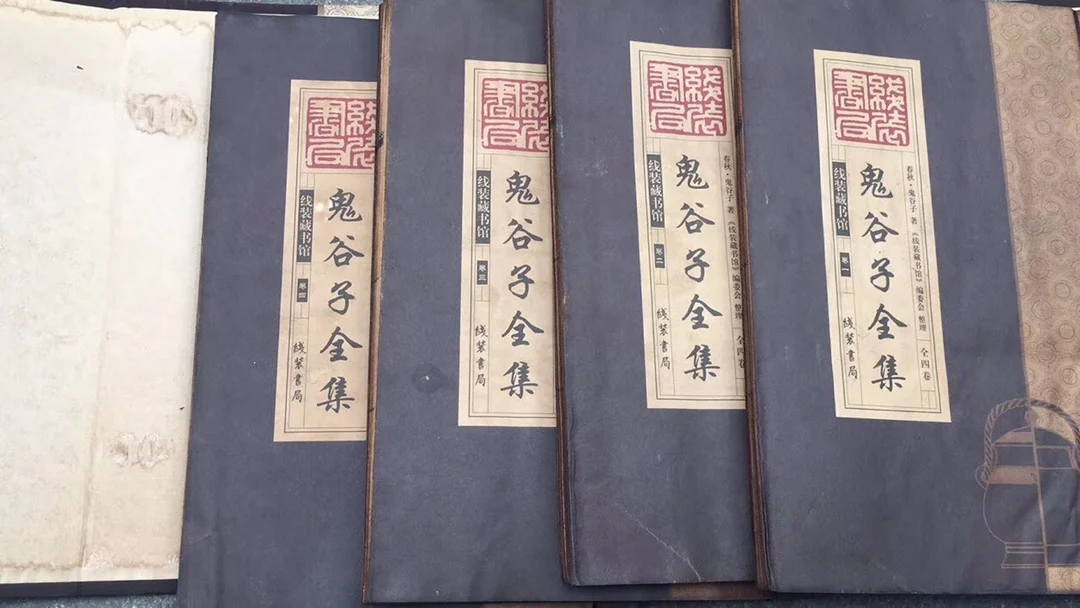 綫装書局
春秋·鬼谷子 著 《线装藏书馆》编委会 整理 全四卷
鬼谷子全集
线装藏书馆 卷一 线装書局
綫装書局
春秋·鬼谷子 著 《线装藏书馆》编委会 整理 全四卷
鬼谷子全集
线装藏书馆 卷二 线装書局
綫装書局
鬼谷子全集
线装藏书馆 卷三 线装書局
綫装書局
鬼谷子全集
线装藏书馆 卷四 线装書局